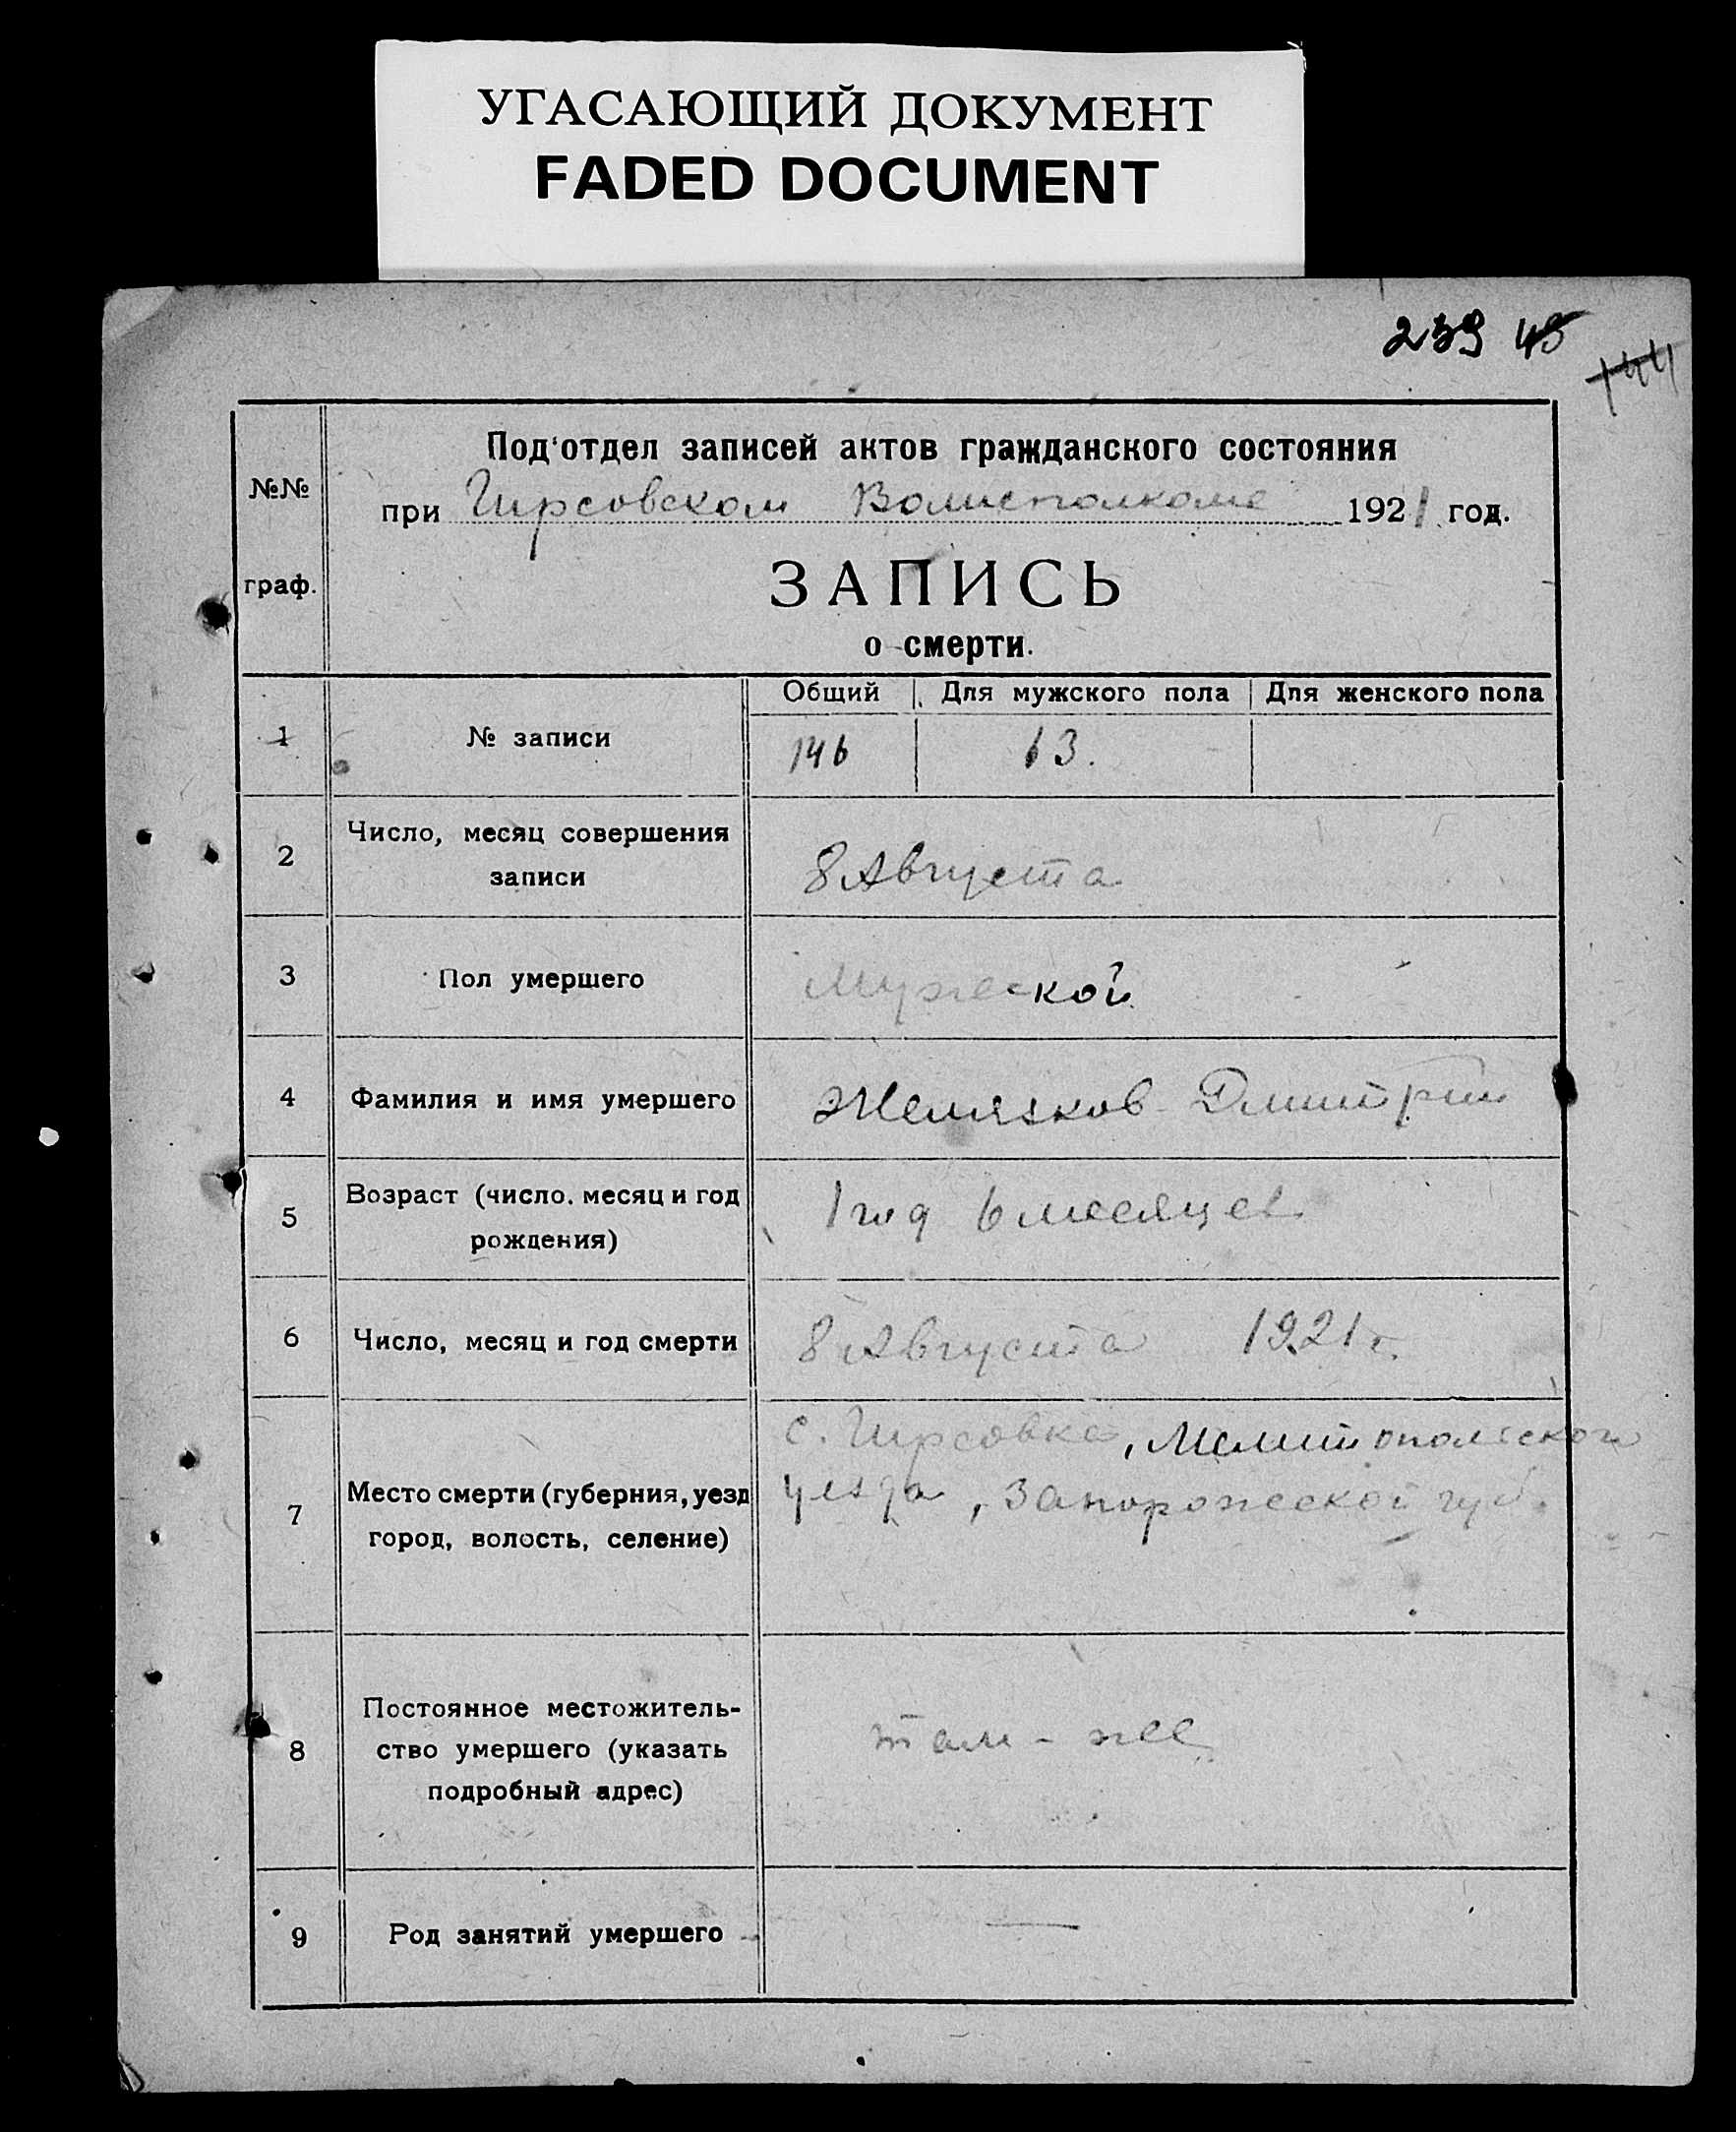 УГАСАЮЩИЙ ДОКУМЕНТ
FADED DOCUMENT
239 45
144
Под'отдел записей актов гражданского состояния
№№
при Гирсовском Волисполкоме 1921 год.
граф.
ЗАПИСЬ
о смерти.
Общий Для мужского пола Для женского пола
1 № записи 146 63.
2 Число, месяц совершения
записи
8 Августа
3 Пол умершего Мужской
4 Фамилия и имя умершего Желязков Дмитрий
5 Возраст (число, месяц и год
рождения)
1 год 6 месяцев
6 Число, месяц и год смерти 8 Августа 1921 г.
7 Место смерти (губерния, уезд
город, волость, селение)
с. Гирсовка, Мелитопольского
уезда, Запорожской губ.
8 Постоянное местожитель-
ство умершего (указать
подробный адрес)
там - же
9 Род занятий умершего —